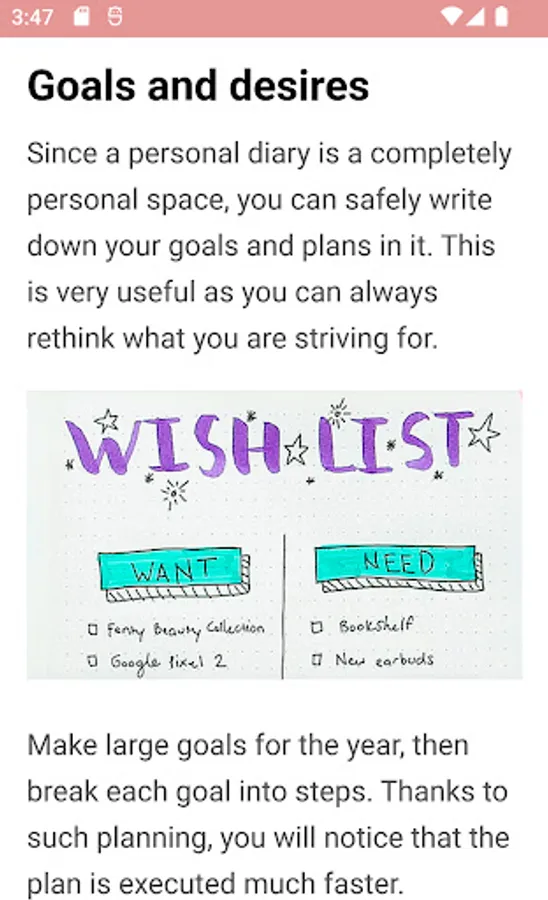 3:47
Goals and desires
Since a personal diary is a completely
personal space, you can safely write
down your goals and plans in it. This
is very useful as you can always
rethink what you are striving for.
WISH LIST
WANT
NEED
Fenty Beauty Collection
Bookshelf
Google Pixel 2
New earbuds
Make large goals for the year, then
break each goal into steps. Thanks to
such planning, you will notice that the
plan is executed much faster.